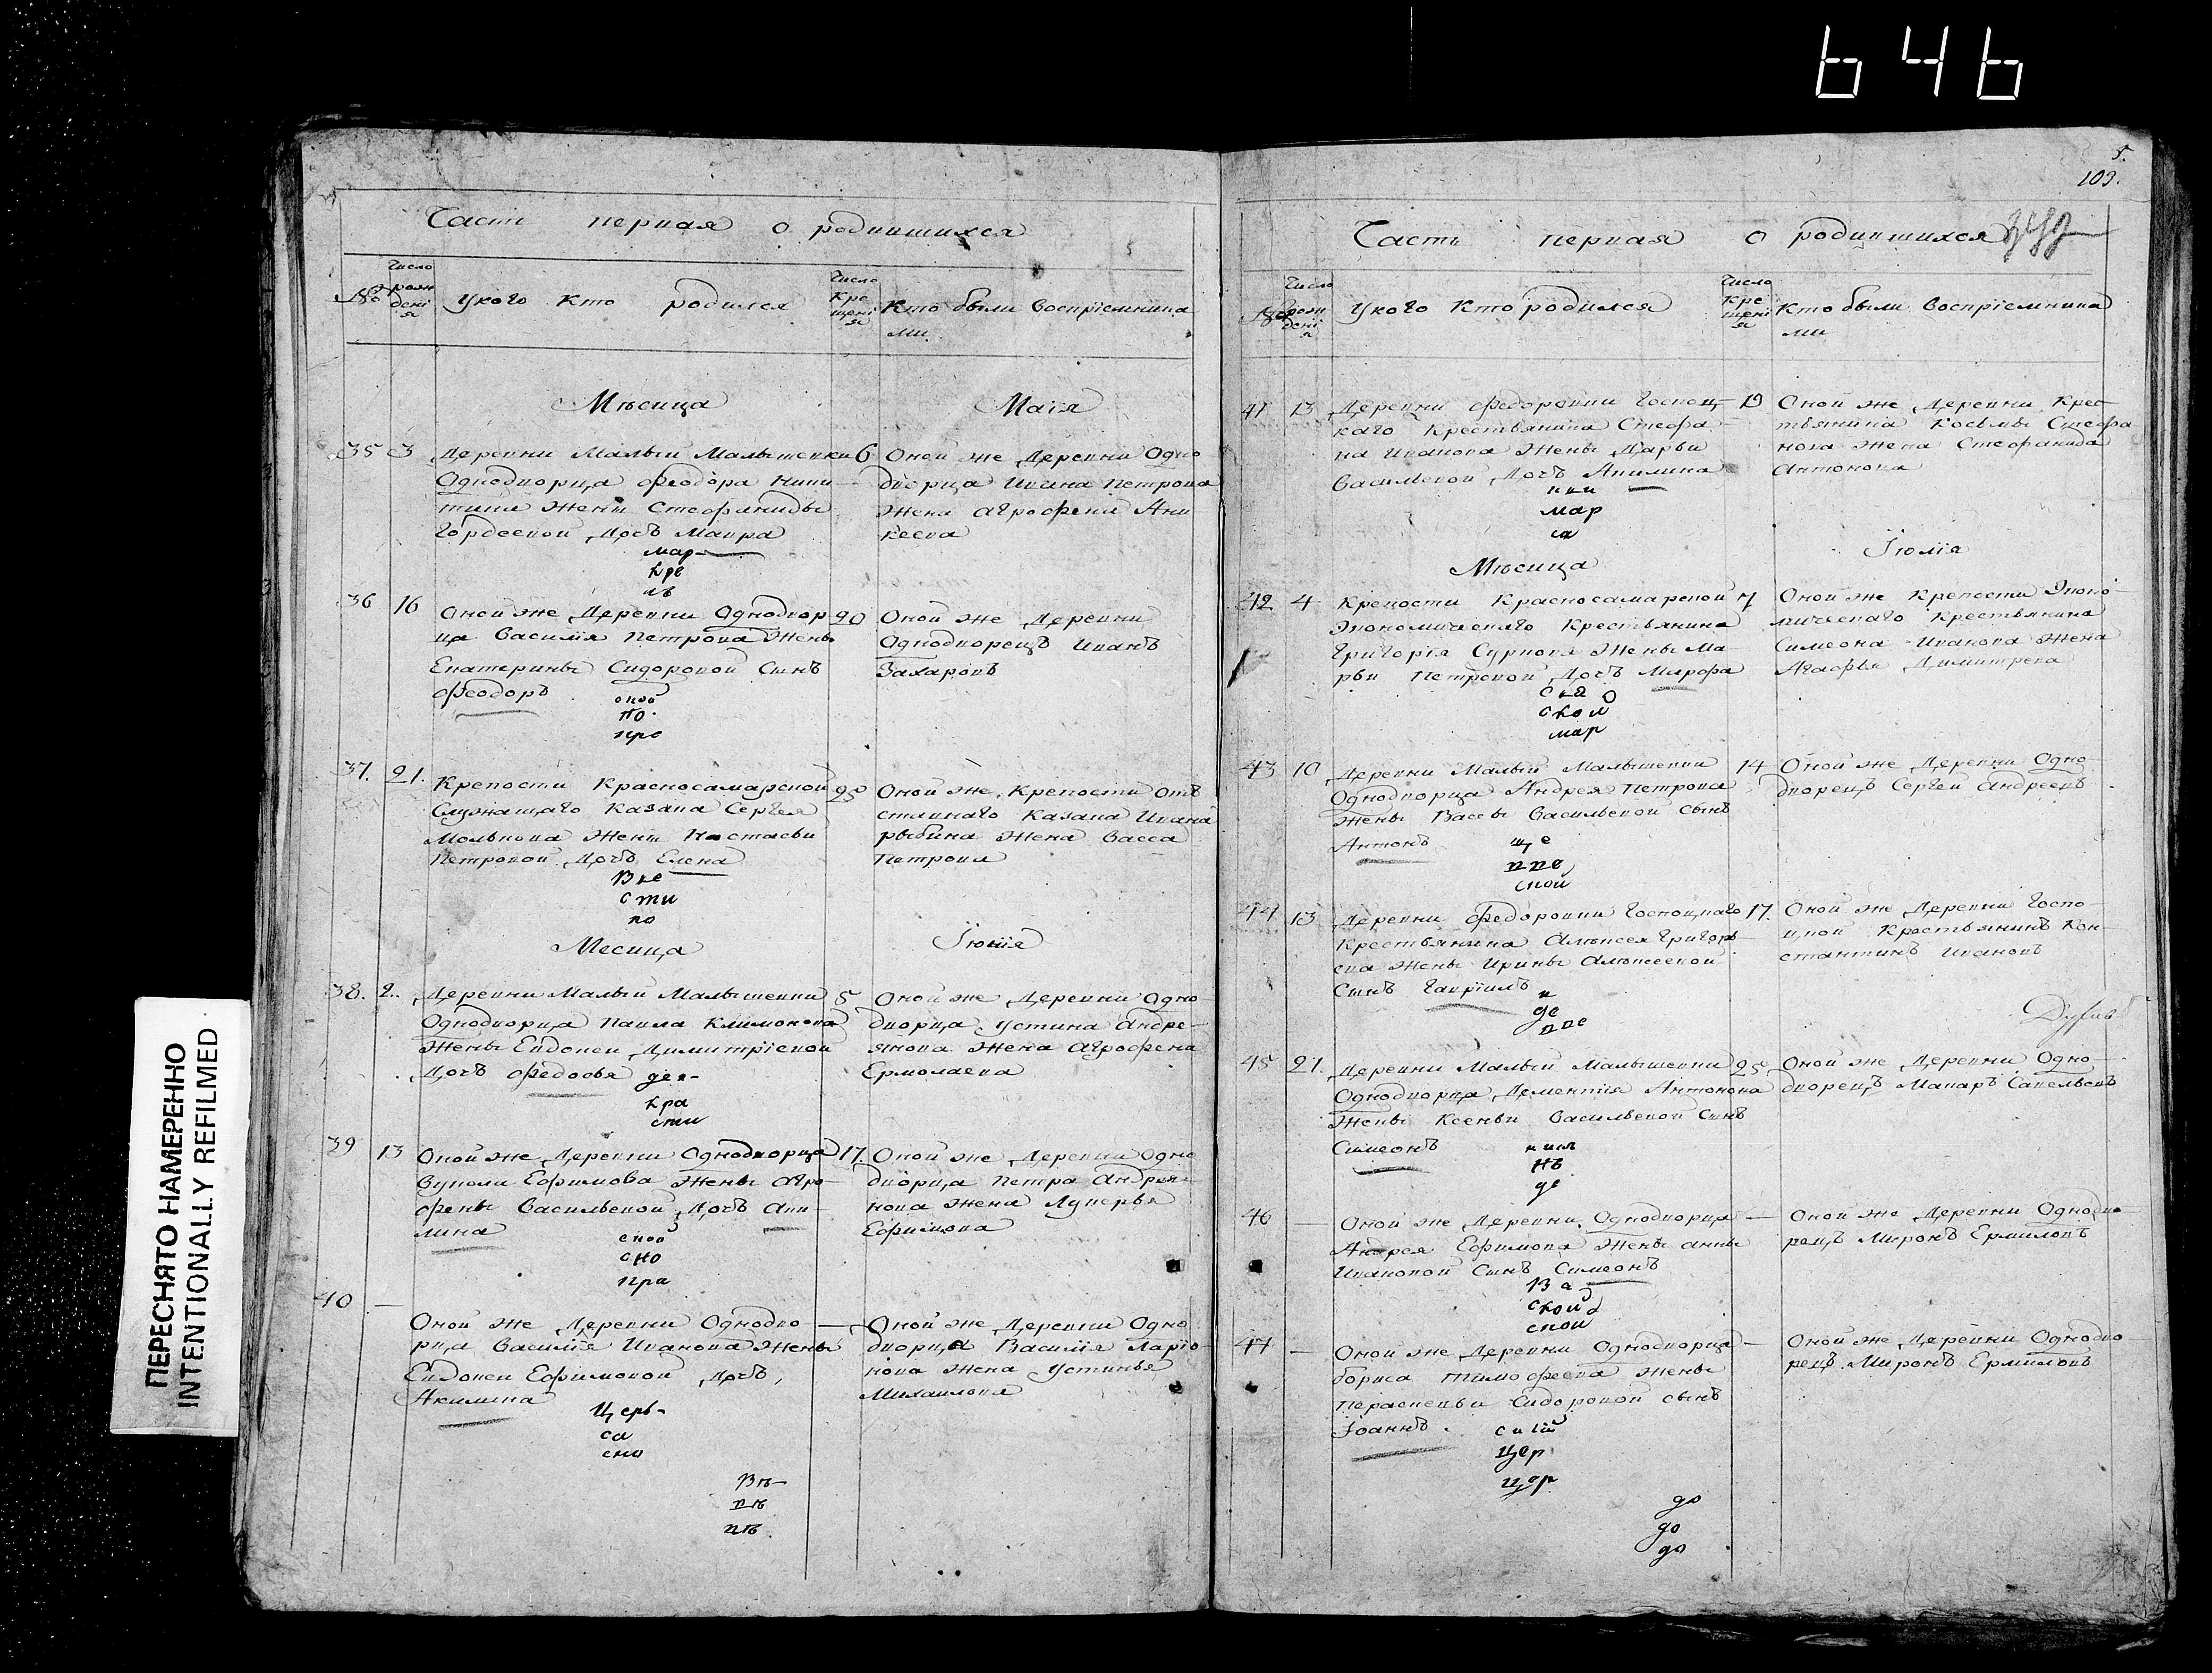 646
ПЕРЕСНЯТО НАМЕРЕННО
INTENTIONALLY REFILMED
Част первая о родившихся
№
Число рожденiя
У кого кто родился
Число крещенiя
Кто были восприемниками
Мѣсица Маiя
35 3
Деревни Малый Малышевки
Однодворца Феодора Ники
тина жены Стефаниды
Гордеевой дочь Мавра
6
Оной же деревни Одно
дворца Ивана Петрова
жена Агрофена Ани
кеева
мар
кре
въ
36 16
Оной же деревни Однодвор
ца Василiя Петрова жены
Екатерины Сидоровой сынъ
Феодоръ
20
Оной же деревни
Однодворецъ Иванъ
Захаровъ
по
пре
37. 21.
Крепости Красносамарской
Служащаго Казака Сергея
жены Настасьи
Петровой дочь Елена
25
Оной же Крепости От
ставнаго Казака Ивана
рыбина жена Васса
Петрова
сти
по
Месица Iюнiя
38. 2.
Деревни Малый Малышевки
Однодворца Павла Климонова
жены Евдокеи Димитрiевой
дочь Федосья
5
Оной же деревни Одно
дворца Устина Андре
янова жена Агрофена
Ермолаева
кра
сти
39 13
Оной же деревни Однодворца
Вукола Ефимова жены Агро
фены Васильевой дочь Аки
лина
17.
Оной же деревни Одно
дворца Петра Андрея
нова жена Лукерья
Ефимова
ской
сно
пра
40 —
Оной же деревни Однодво
рца Василiя Иванова жены
Евдокеи Ефимовой дочь
Акилина
—
Оной же деревни Одно
дворца Василiя Ларiо
нова жена Устинья
Михаилова
Церь
са
Въ
пъ
пъ
5.
109.
Часть первая о родившихся
№
Число рожденiя
У кого кто родился
Число крещенiя
Кто были восприемника
ми
41 13
Деревни Федоровки Госпоц
каго Крестьянина Стефа
на Иванова жены Дарьи
Васильевой дочь Акилина
19
Оной же деревни Крес
тьянина Косьмы Стефа
нова жена Стефанида
Антонова
мар
са
Мѣсица Iюлiя
42 4
Крепости Красносамарской
Экономическаго Крестьянина
Григорiя Суркова жены Ма
рьи Петровой дочь Мирофа
7
Оной же Крепости Эконо
мическаго Крестьянина
Симеона Иванова жена
Агафья Димитрева
ской
мар
43 10
Деревни Малый Малышевки
Однодворца Андрея Петрова
жены Вассы Васильевой сынъ
Антонъ
14
Оной же деревни Одно
дворецъ Сергей Андреевъ
ще
ппе
ской
44 13
Деревни Федоровки Госпоцкаго
Крестьянина Алексея Григорь
ева жены Ирины Алексеевой
сынъ Гаврiилъ
17.
Оной же деревни Госпо
цкой Крестьянинъ Кон
стантинъ Ивановъ
де
ппе
45 21.
Деревни Малый Малышевки
Однодворца Дементiя Антонова
жены Ксеньи Васильевой сынъ
Симеонъ
25
Оной же деревни Одно
дворецъ Макаръ Савельевъ
нъ
де
46 —
Оной же деревни Однодворца
Андрея Ефимова жены Анны
Ивановой сынъ Симеонъ
—
Оной же деревни Однодво
рецъ Миронъ Ермиловъ
Ва
ской
ской
47 —
Оной же деревни Однодворца
Бориса Тимофеева жены
Параскевьи Сидоровой сынъ
Iоаннъ.
—
Оной же деревни Однодво
рецъ Миронъ Ермиловъ
цер
цер
до
до
до